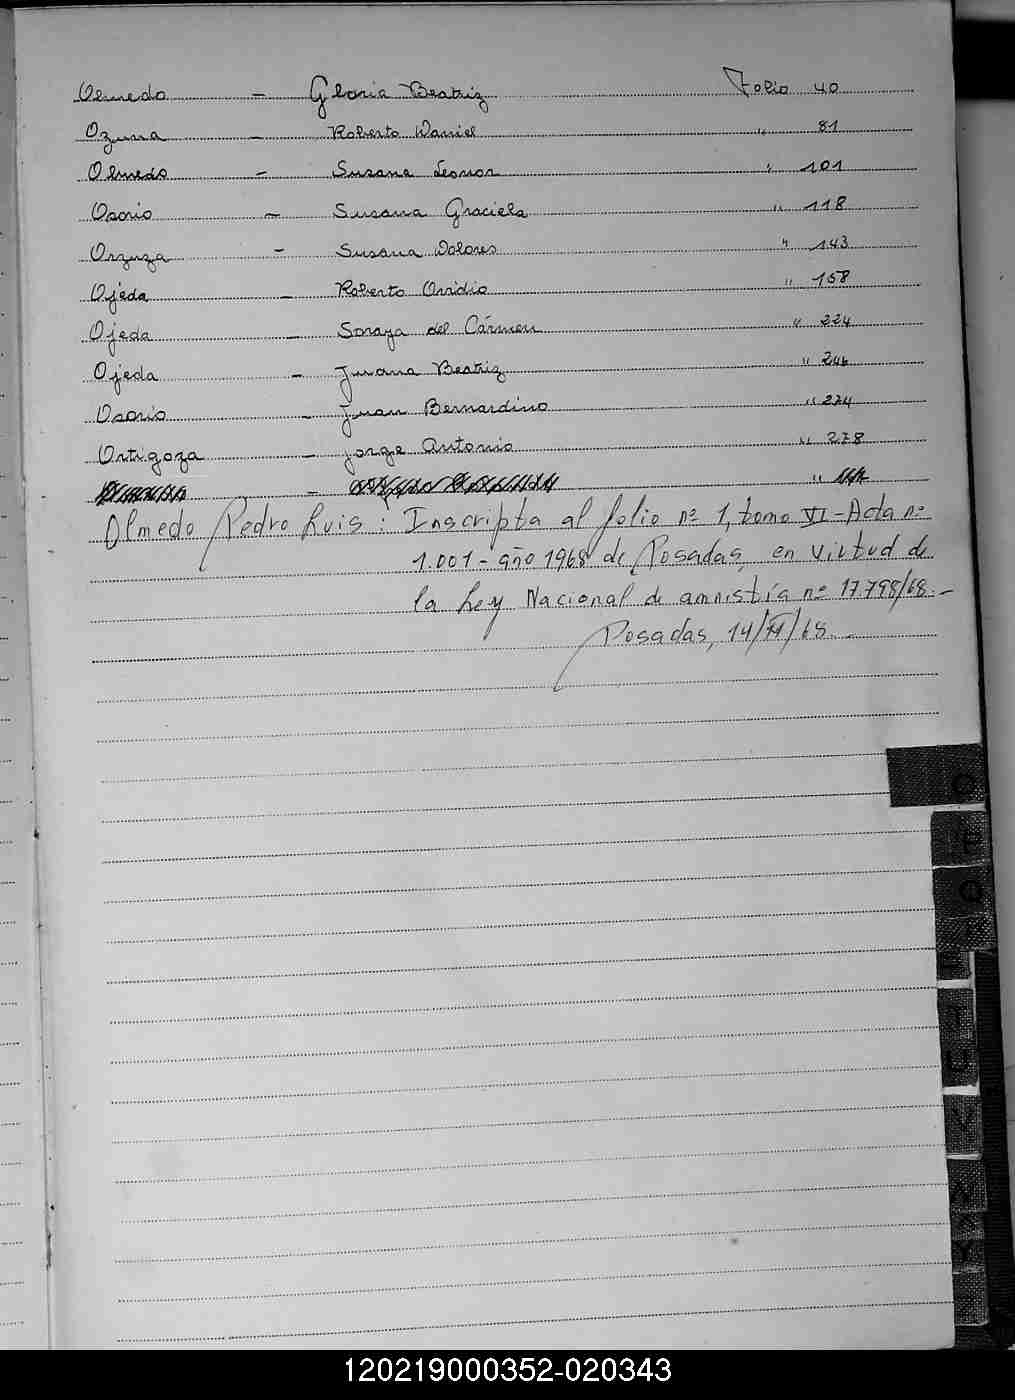 Olmedo - Gloria Beatriz Folio 40
Ozuna - Roberto Daniel " 81
Olmedo - Susana Leonor " 101
Osorio - Susana Graciela " 118
Orzuza - Susana Dolores " 143
Ojeda - Roberto Ovidio " 158
Ojeda - Soraya del Cármen " 224
Ojeda - Juana Beatriz " 246
Osorio - Juan Bernardino " 274
Ortigoza - Jorge Antonio " 278
- "
Olmedo Pedro Luis: Inscripta al folio nº 1, tomo VI - Acta nº
1.001 - año 1968 de Posadas, en virtud de
la Ley Nacional de amnistía nº 17.798/68.-
Posadas, 14/XI/68.
O
P
Q
T
U
V
X
Y
120219000352-020343